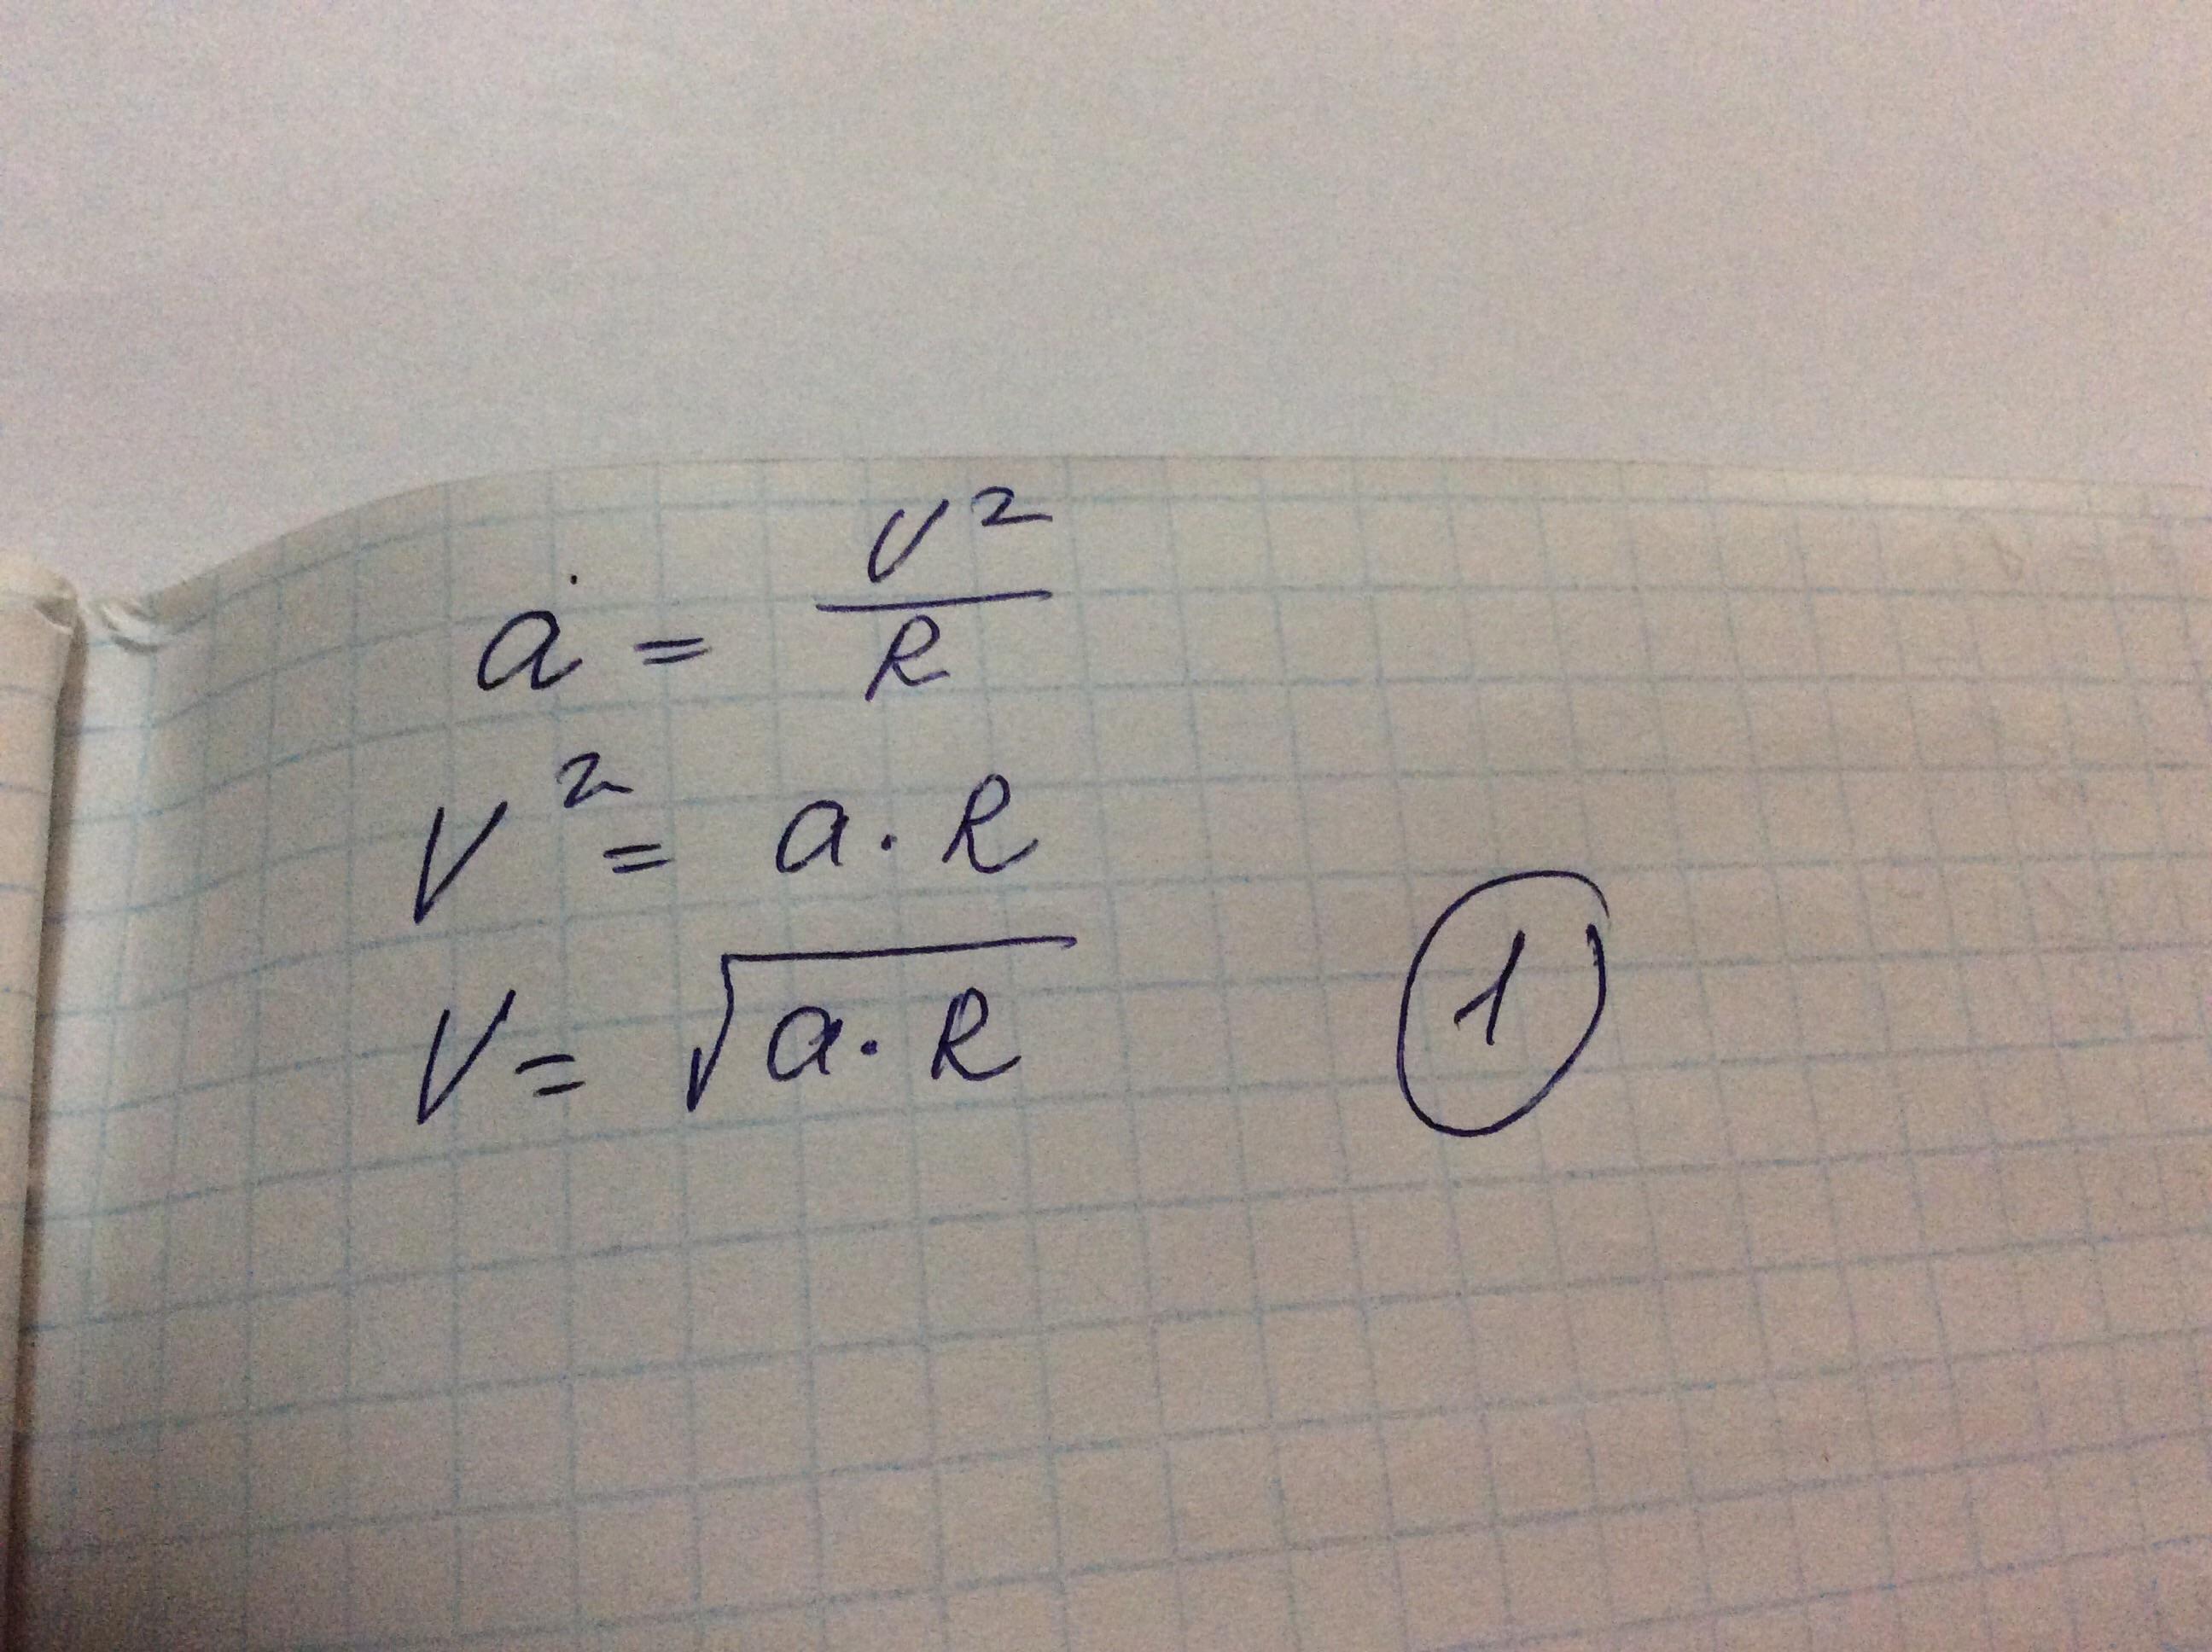 a = V²/R
V² = a · R
V = √(a · R)
1